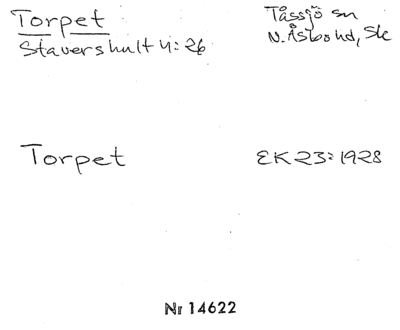 Torpet
Stavershult 4:26
Tåssjö sn
N. Åsbo hd, Sk
Torpet
EK 23:1928
Nr 14622